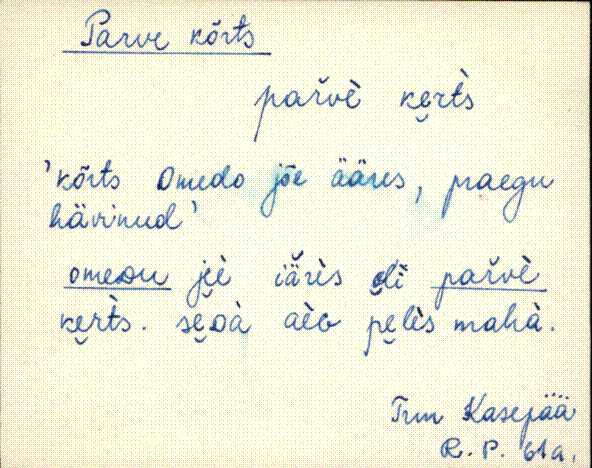 Parve kõrts
pař̀vè ke̮rt̀s
'kõrts Omedo jõe ääres, praegu
hävinud'
omeᴅu je̮è iä̆rès e̮lì pař̀vè
ke̮rt̀s. se̮ᴅà aèɢ pe̮lès mahà.
Trm Kasepää
R. P. 61a.